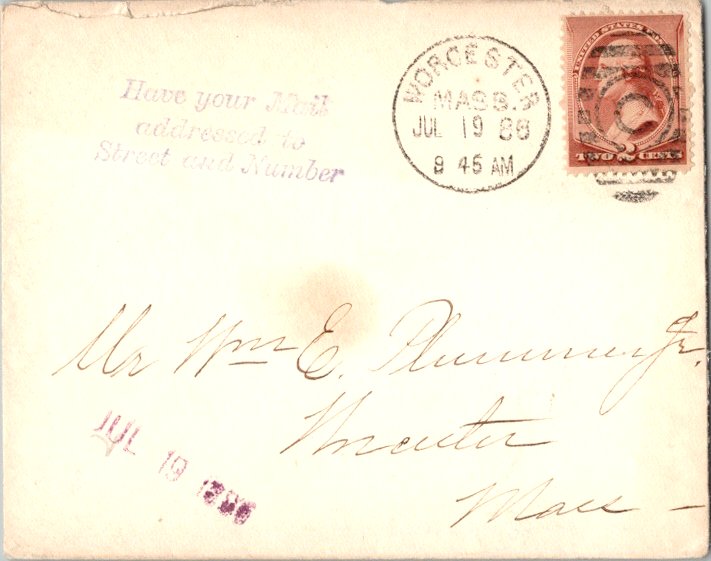 Have your Mail
addressed to
Street and Number
WORCESTER
MASS.
JUL 19 86
8 45 AM
UNITED STATES
TWO 2 CENTS
Mr Wm E. Plummer Jr.
Worcester
Mass
JUL 19 1886